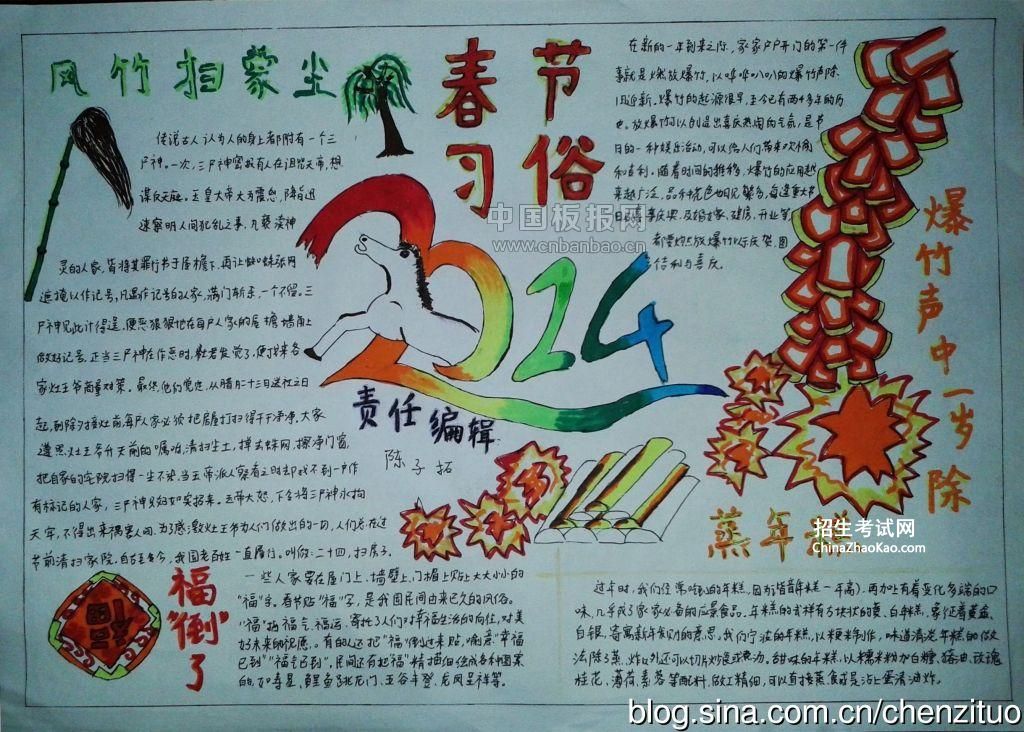 风竹扫蒙尘
传说古人认为人的身上都附有一个三
尸神。一次,三尸神密报有人在诅咒天帝,想
谋反天庭。玉皇大帝大为震怒,降旨迅
速察明人间犯乱之事,凡亵渎神
灵的人家,皆将其罪行书于屋檐下,再让蜘蛛张网
遮掩以作记号,凡遇作记号的人家,满门斩杀,一个不留。三
尸神见此计得逞,便恶狠狠地在每户人家的屋檐墙角上
做好记号。正当三尸神在作恶时,
家灶王爷商量对策。最终他们
起,到除夕接灶前,每户人家必须把房屋打扫得干干净净,大家
遵照灶王爷升天前的嘱咐,清扫尘土,掸去蛛网,擦净门窗,
把自家的宅院扫得一尘不染。当玉帝派人察看之时却找不到一户作
有标记的人家,三尸神只好如实招来。玉帝大怒,下令将三尸神永拘
天牢,不得出来祸害人间。为了感激灶王爷为人们做出的一切,人们总在这
节前清扫家院。自古至今,我国老百姓一直履行。叫做:二十四,扫房子。
春节
习俗
2014
责任编辑
陈子拓
在新的一年到来之际,家家户户开门的第一件
事就是燃放爆竹,以哔哔叭叭的爆竹声除
旧迎新。爆竹的起源很早,至今已有两千多年的历
史。放爆竹可以创造出喜庆热闹的气氛,是节
日的一种娱乐活动,可以给人们带来欢愉
和吉利。随着时间的推移,爆竹的应用越
来越广泛,品种花色也日见繁多,每逢重大节
日及喜事庆典,及婚嫁、建房、开业等
都要燃放爆竹以示庆贺,图
吉利与喜庆。
爆竹声中一岁除
中国板报网
www.cnbanbao.cn
蒸年糕
招生考试网
ChinaZhaoKao.com
福
福“倒”了
一些人家要在屋门上、墙壁上、门楣上贴上大大小小的
“福”字。春节贴“福”字,是我国民间由来已久的风俗。
“福”指福气、福运,寄托了人们对幸福生活的向往,对美
好未来的祝愿。有的还把“福”倒过来贴,喻意“幸福
已到”“福气已到”,民间还有把“福”精描细绘成各种图案
的,如寿星、鲤鱼跳龙门、五谷丰登、龙凤呈祥等。
过年时,我们经常吃的年糕,因为皆音年糕=年高。再加上有着变化多端的口
味,几乎成了家家必备的应景食品。年糕的式样有方块状的黄、白年糕,象征着黄金、
白银,寄寓新年发财的意思。我们宁波的年糕,以粳米制作,味道清淡。年糕的做
法除了蒸、炸以外还可以切片炒食或煮汤。甜味的年糕,以糯米粉加白糖、猪油、玫瑰、
桂花、薄荷、素蓉等配料,做工精细,可以直接蒸食或是沾上蛋清油炸。
blog.sina.com.cn/chenzituo